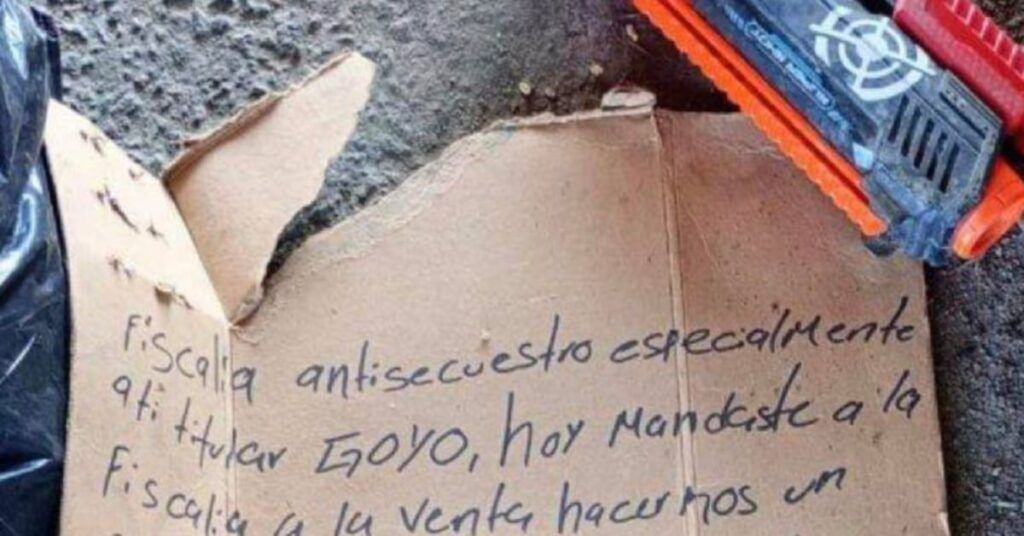 Fiscalia antisecuestro especialmente
a ti titular GOYO, hoy Mandaste a la
Fiscalia a la venta hacernos un